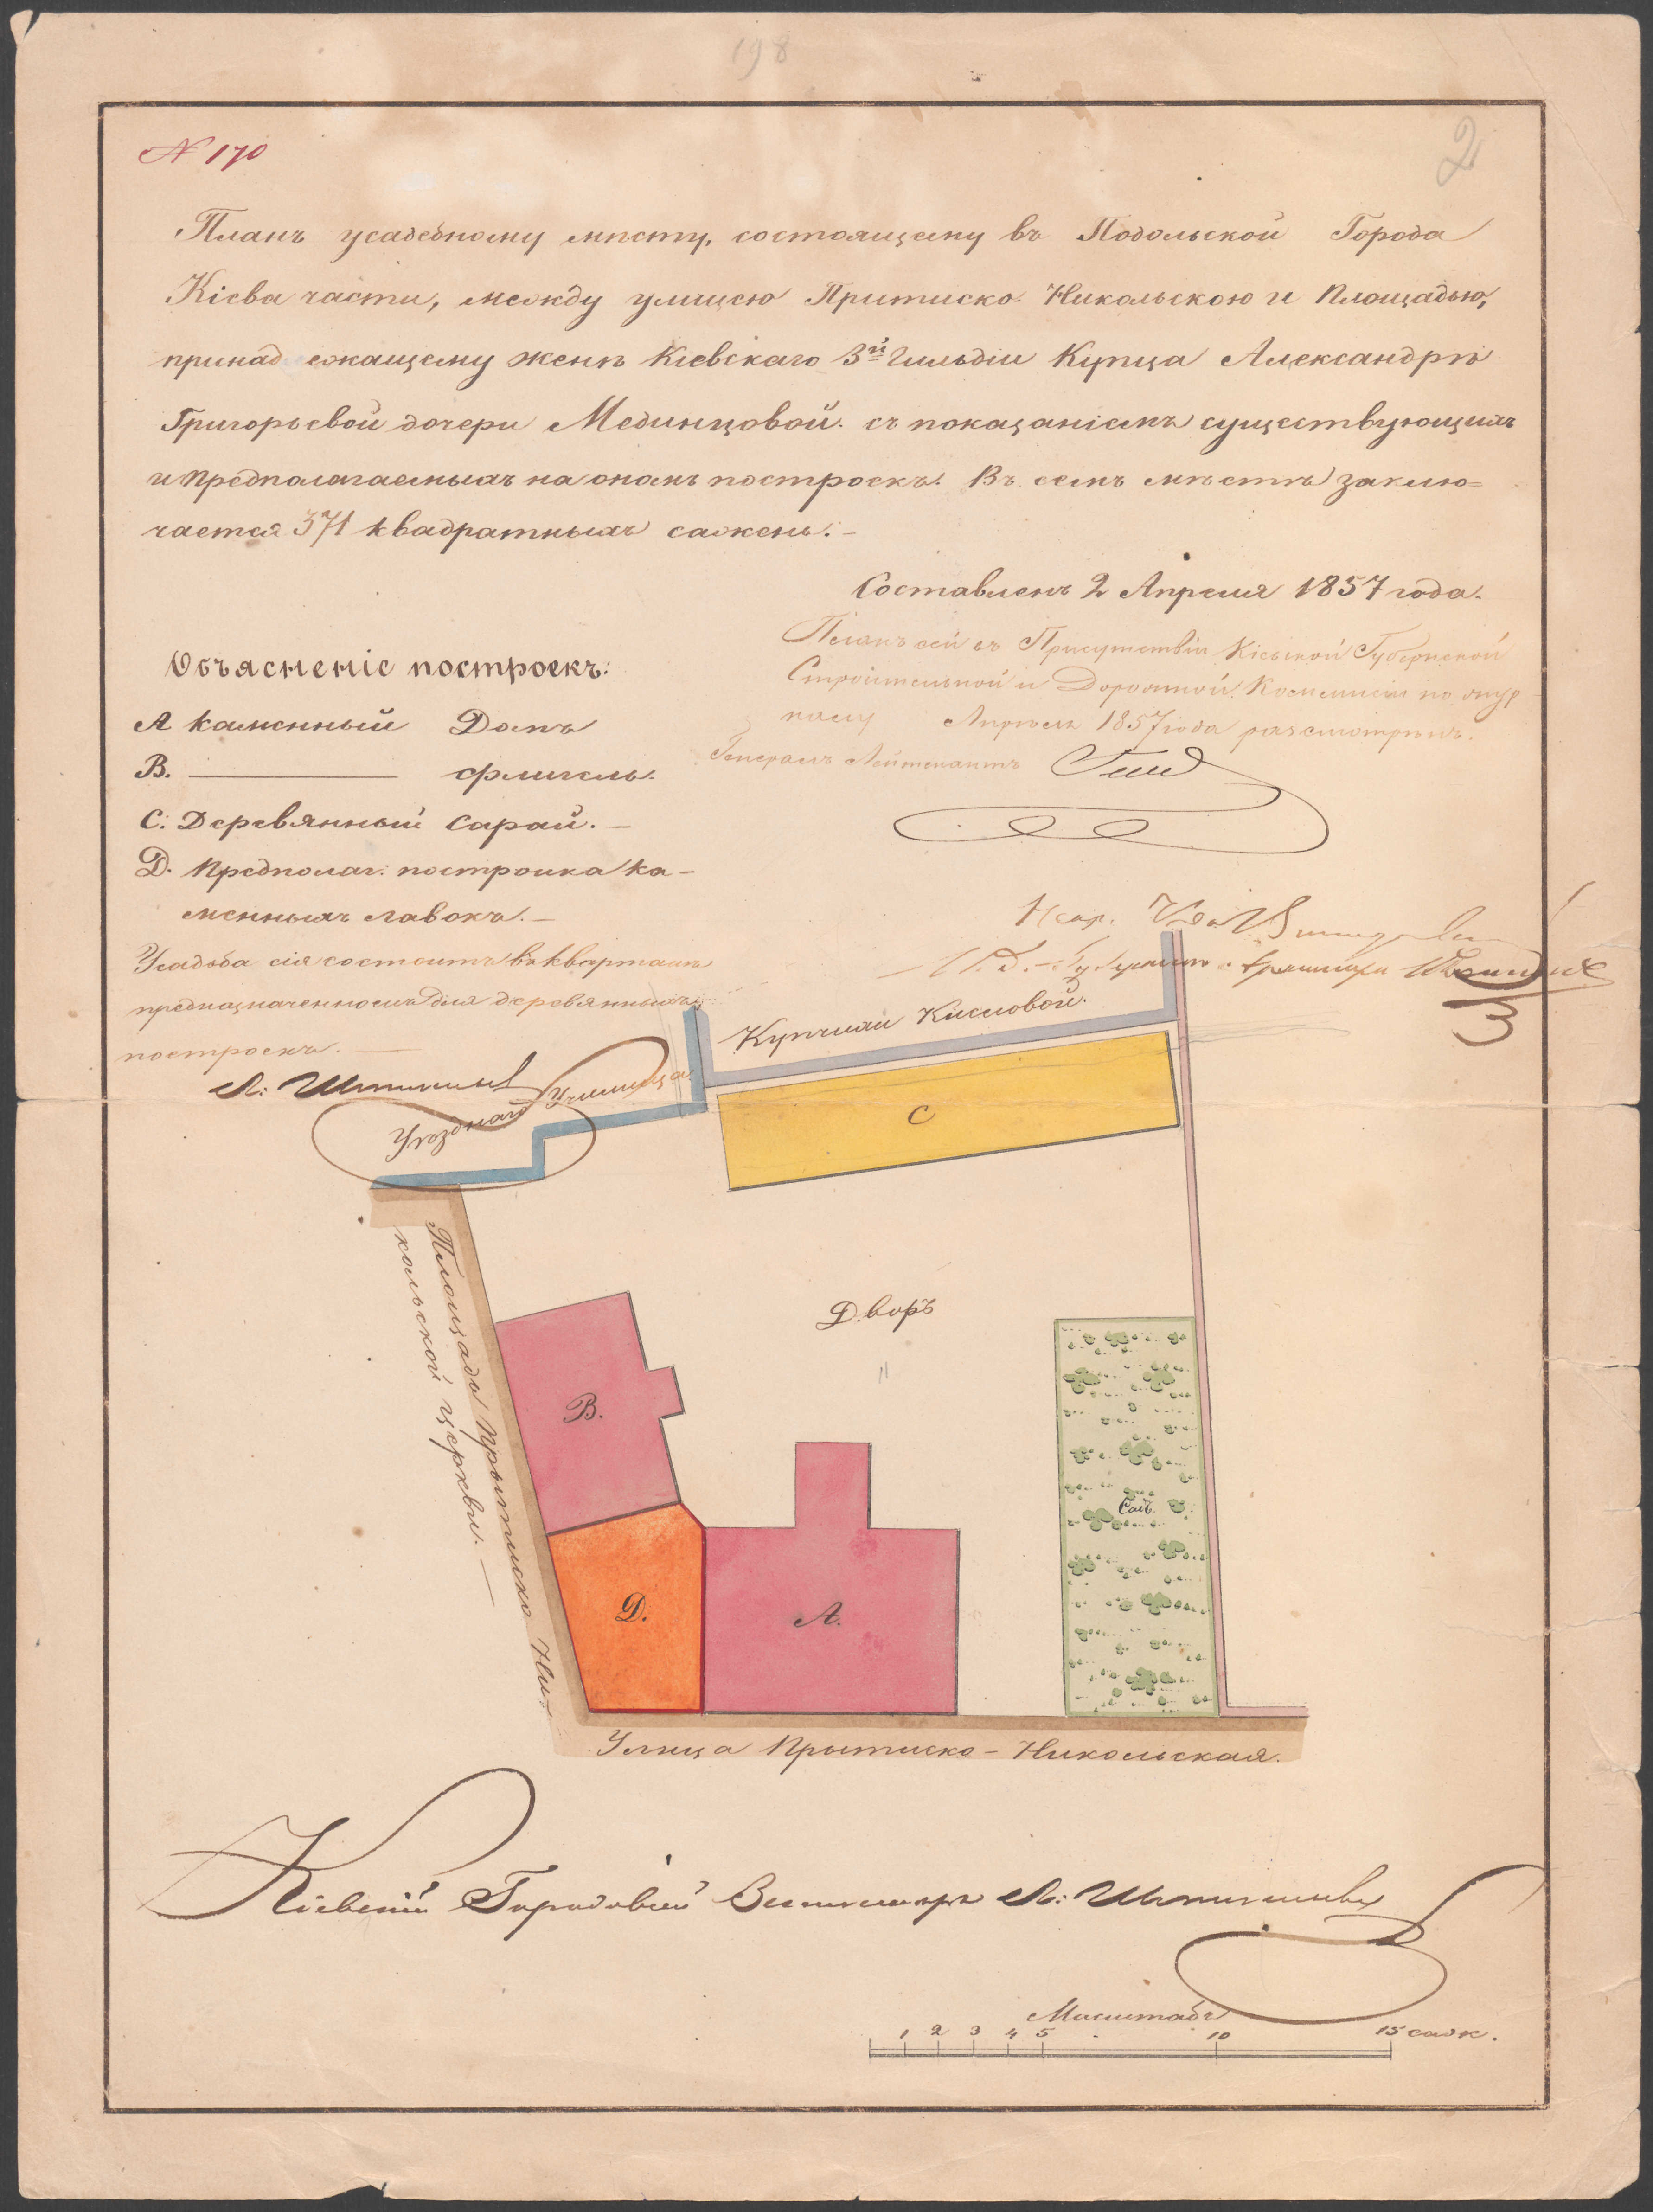 198
2
N 170
Планъ усадебному мѣсту, состоящему въ Подольской Города
Кіева части, между улицею Притиско-Никольскою и Площадью,
принадлежащему женѣ Кіевскаго 3й Гильдіи Купца Александрѣ
Григорьевой дочери Мединцовой. съ показаніемъ существующихъ
и предполагаемыхъ на ономъ построекъ. Въ семъ мѣстѣ заклю=
чается 371 квадратныхъ сажень.-
Составленъ 2 Апреля 1857 года.
Планъ сей въ Присутствіи Кіевской Губернской
Строительной и Дорожной Коммисіи по
Апрѣля 1857 года разсмотрѣнъ.
Генералъ Лейтенантъ
Объясненіе построекъ:
А Каменный Домъ
В. ——— флигель.
С. Деревянный Сарай.—
Д. Предполаг: постройка ка-
менныхъ лавокъ.—
Усадьба сія состоитъ въ кварталѣ
предназначенномъ для деревянныхъ
построекъ.—
И. Д. Губернскаго
Купчихи Киселовой.
Уѣзднаго Училища.
С
Площадь Прытиско Ни-
кольской церквы.—
Дворъ
В.
Садъ.
Д.
А.
Улица Прытиско-Никольская.
Кіевскій Городовый Землемѣръ
Масштабъ
1 2 3 4 5 10 15 саж.